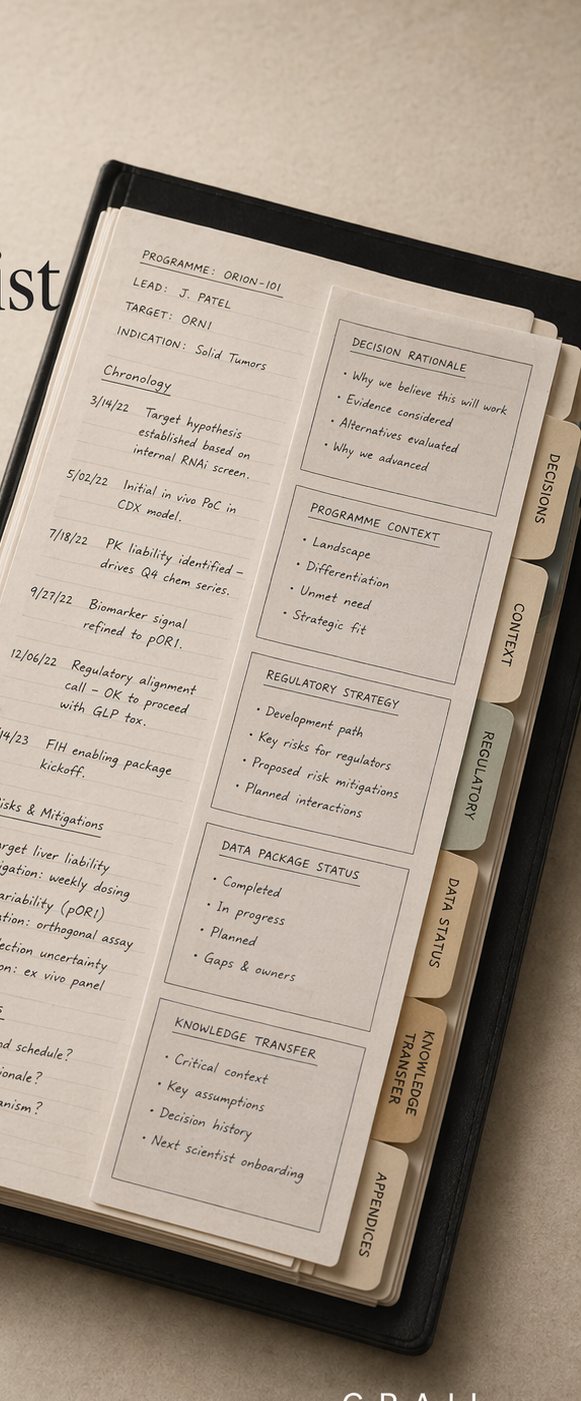 ist
PROGRAMME: ORION-101
LEAD: J. PATEL
TARGET: ORN1
INDICATION: Solid Tumors
Chronology
3/14/22 Target hypothesis
established based on
internal RNAi screen.
5/02/22 Initial in vivo PoC in
CDX model.
7/18/22 PK liability identified –
drives Q4 chem series.
9/27/22 Biomarker signal
refined to pOR1.
12/06/22 Regulatory alignment
call – OK to proceed
with GLP tox.
/14/23 FIH enabling package
kickoff.
isks & Mitigations
arget liver liability
igation: weekly dosing
ariability (pOR1)
ation: orthogonal assay
ection uncertainty
on: ex vivo panel
s
nd schedule?
ionale?
anism?
DECISION RATIONALE
• Why we believe this will work
• Evidence considered
• Alternatives evaluated
• Why we advanced
PROGRAMME CONTEXT
• Landscape
• Differentiation
• Unmet need
• Strategic fit
REGULATORY STRATEGY
• Development path
• Key risks for regulators
• Proposed risk mitigations
• Planned interactions
DATA PACKAGE STATUS
• Completed
• In progress
• Planned
• Gaps & owners
KNOWLEDGE TRANSFER
• Critical context
• Key assumptions
• Decision history
• Next scientist onboarding
DECISIONS
CONTEXT
REGULATORY
DATA STATUS
KNOWLEDGE
TRANSFER
APPENDICES